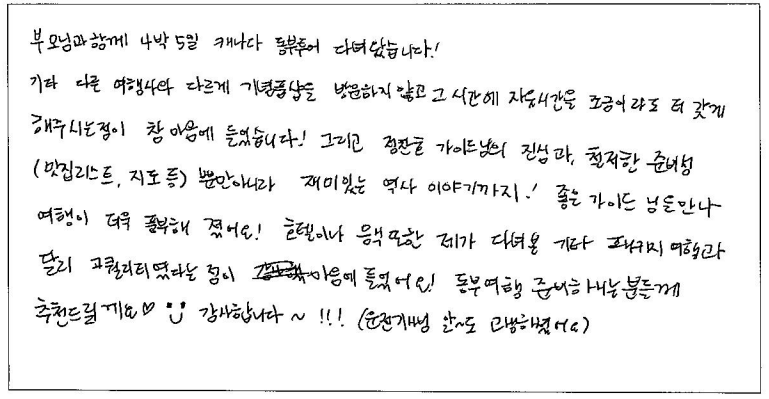 부모님과 함께 4박 5일 캐나다 동부투어 다녀왔습니다!
기타 다른 여행사와 다르게 기념품샵을 방문하지 않고 그 시간에 자유시간을 조금이라도 더 갖게
해주시는점이 참 마음에 들었습니다! 그리고 정찬호 가이드님의 진심과, 철저한 준비성
(맛집리스트, 지도 등) 뿐만아니라 재미있는 역사 이야기까지! 좋은 가이드 님을만나
여행이 더욱 풍부해 졌어요! 호텔이나 음식 또한 제가 다녀본 기타 패키지 여행과
달리 고퀄리티였다는 점이 마음에 들었어요! 동부여행 준비하시는분들께
추천드릴게요♡ 감사합니다~ !!! (운전기사님 도 고생하셨어요)